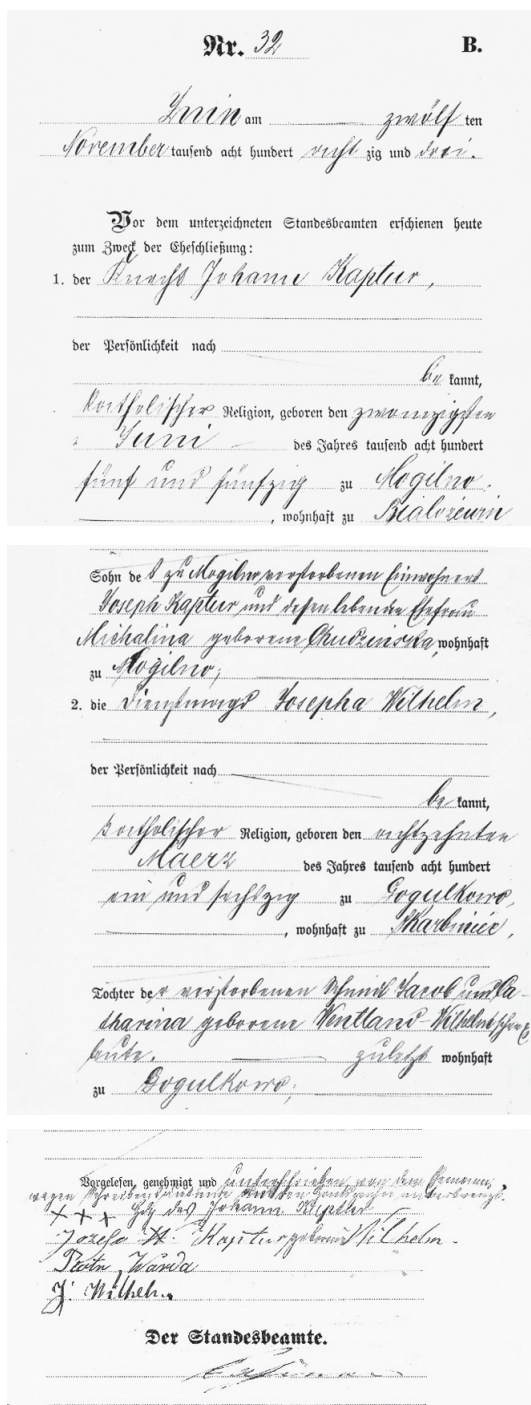 Nr. 32 B.
Znin am zwölf ten
November tausend acht hundert acht zig und drei.
Vor dem unterzeichneten Standesbeamten erschienen heute
zum Zweck der Eheschließung:
1. der Knecht Johann Kaptur,
der Persönlichkeit nach
be kannt,
katholischer Religion, geboren den zwanzigsten
Juni des Jahres tausend acht hundert
fünf und fünfzig zu Mogilno.
, wohnhaft zu
Sohn de s zu Mogilno verstorbenen Einwohners
Joseph Kaptur, und dessen lebenden Ehefrau
Michalina geborene Chudzinska, wohnhaft
zu Mogilno,
2. die Dienstmagd Josepha Wilhelm,
der Persönlichkeit nach
be kannt,
katholischer Religion, geboren den achtzehnten
Maerz des Jahres tausend acht hundert
ein und sechszig zu Gogulkowo,
, wohnhaft zu Skarbinice,
Tochter de r verstorbenen Schmid Jacob und Ca-
tharina geborene Wentland-Wilhelm'schen Ehe
leute. zuletzt wohnhaft
zu Gogulkowo,
Vorgelesen, genehmigt und unterschrieben, von dem Ehemann,
wegen Schreibensunkunde mit den Handzeichen unterkreuzt.
+ + + Hdz des Johann Kaptur
Josefa Kaptur geborene Wilhelm.
Piotr Warda
J. Wilhelm.
Der Standesbeamte.